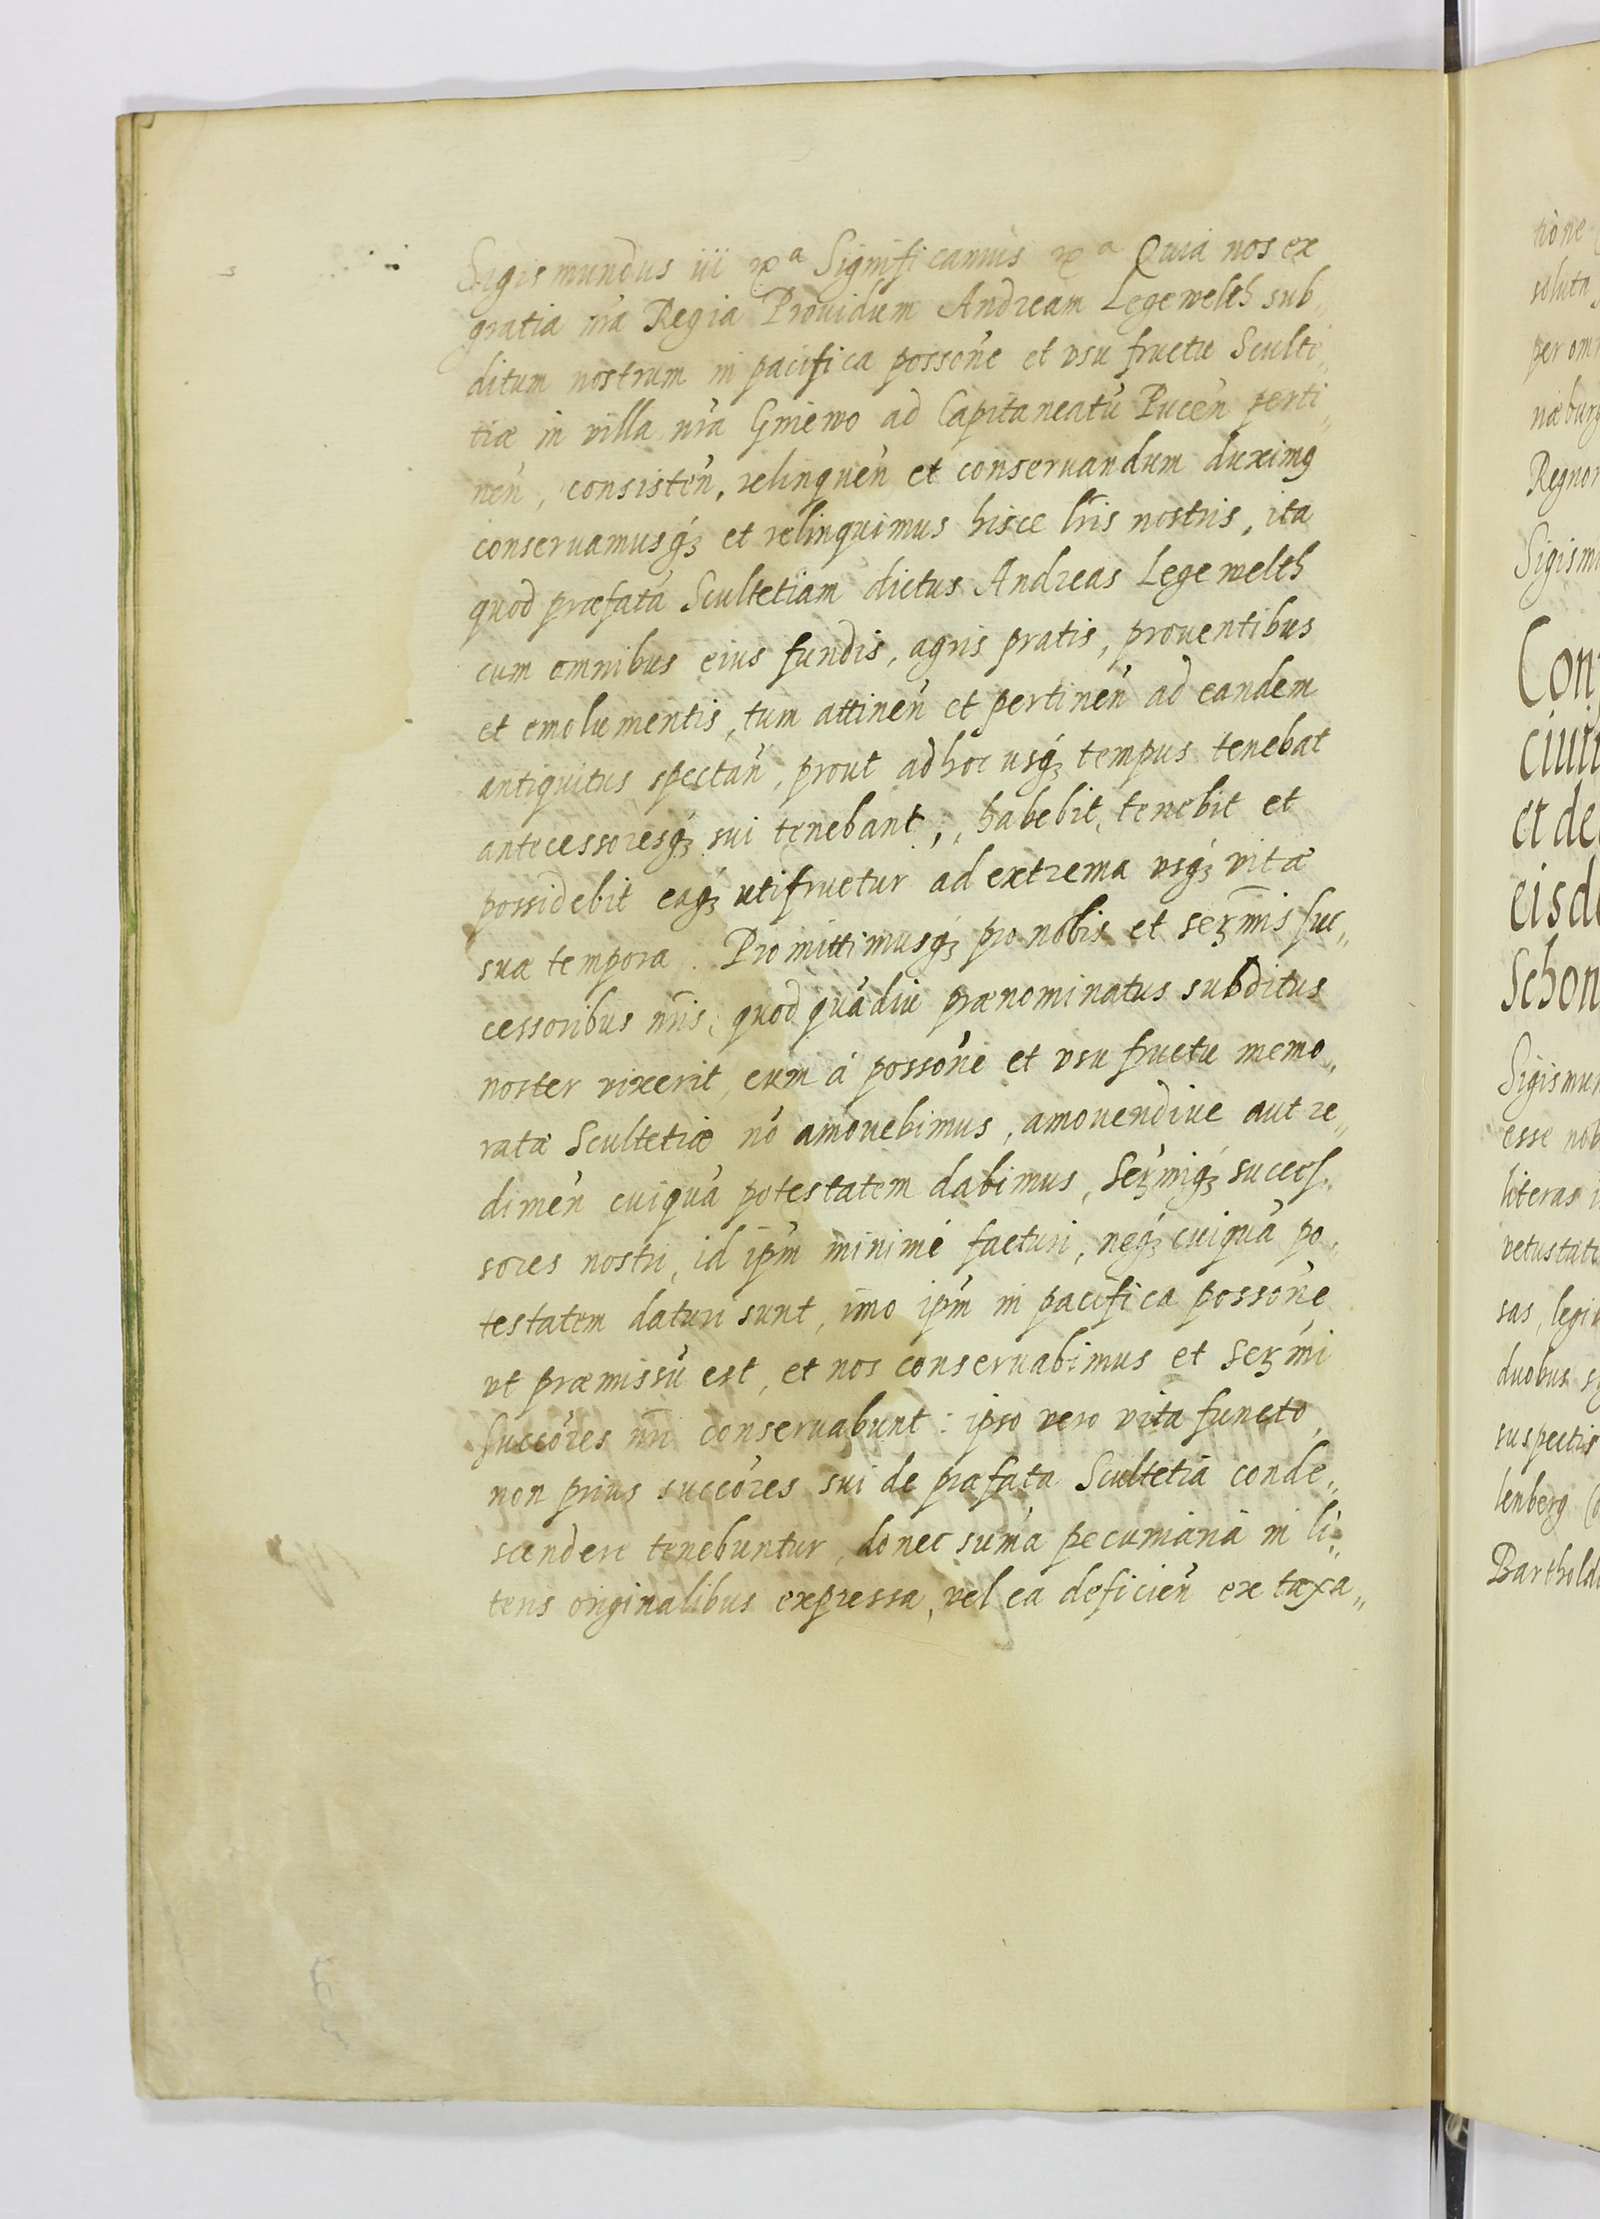 Sigismundus iii rx^a Significamus rx^a Quia nos ex
gratia nr̃a Regia Prouidum Andream Legewelth sub„
ditum nostrum in pacifica possoñe et vsu fructu Sculte„
tiæ in villa nr̃a Gniewo ad Capitaneatũ Puceñ perti„
neñ, consisteñ, relinqueñ et conseruandum duximꝰ
conseruamusqꝫ et relinquimus hisce lr̃is nostris, ita
quod præfatã Scultetiam dictus Andreas Lege welth
cum omnibus eius fundis, agris pratis, prouentibus
et emolumentis, tum attineñ et pertineñ ad eandem
antiquitus spectañ, prout ad hoc usqꝫ tempus tenebat
antecessoresqꝫ sui tenebant, habebit, tenebit et
possidebit eaqꝫ utifruetur ad extrema vsqꝫ vitæ
suæ tempora. Promittimusqꝫ pro nobis et serꝫm̃is suc„
cessoribus nr̃is, quod quãdiu prænominatus subditus
noster vixerit, eum á possoñe et vsu fructu memo„
ratæ Scultetiæ nõ amouebimus, amouendiue aut re„
dimeñ cuiquã potestatem dabimus, Serꝫm̃iqꝫ succes„
sores nostri, id ip̃m minimé facturi, neqꝫ cuiquã po„
testatem daturi sunt, imo ip̃m in pacifica possoñe,
vt præmissũ est, et nos conseruabimus et Serꝫm̃i
succõres nr̃i conseruabunt: ipso vero vita functo,
non prius succõres sui de præfata Scultetia conde„
scendere tenebuntur, donec sum̃a pecuniaria in li„
teris originalibus expressa, vel ea deficieñ ex taxa„
tione
soluta
per om
Regnor
Sigism
Con
ciui
et de
eisd
Schon
Sigismun
esse nob
literas i
vetustat
sas, legi
duobus
suspectis
lenberg
Barthold